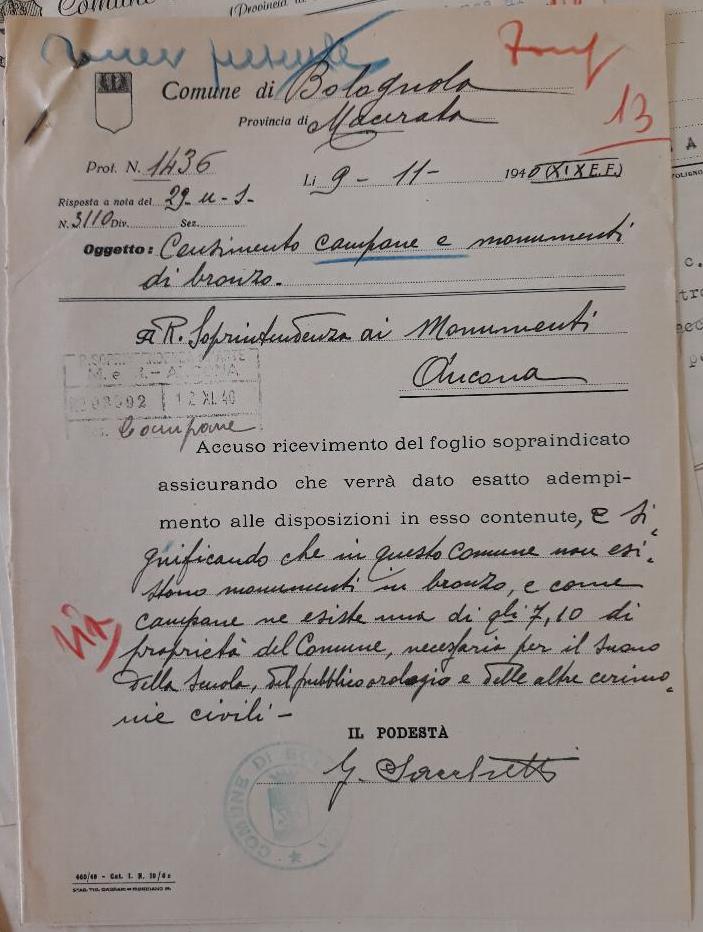 Comune di Bolognola
Provincia di Macerata
13
Prot. N. 1436
Li 9 - 11 - 1940 (XIX E.F.)
Risposta a nota del 29 - u - s.
N. 3110 Div. Sez.
Oggetto: Censimento campane e monumenti
di bronzo.
R. Soprintendenza ai Monumenti
Ancona
12 XI. 40
Campane
Accuso ricevimento del foglio sopraindicato
assicurando che verrà dato esatto adempi-
mento alle disposizioni in esso contenute, e si-
gnificando che in questo Comune non esi-
stono monumenti in bronzo, e come
campane ne esiste una di qli 7,10 di
proprietà del Comune, necessaria per il suono
della Scuola, del pubblico orologio e delle altre cerimo-
nie civili -
IL PODESTÀ
G. Sacchetti
COMUNE DI BO
460/40 - Cat. I. N. 10/6 c